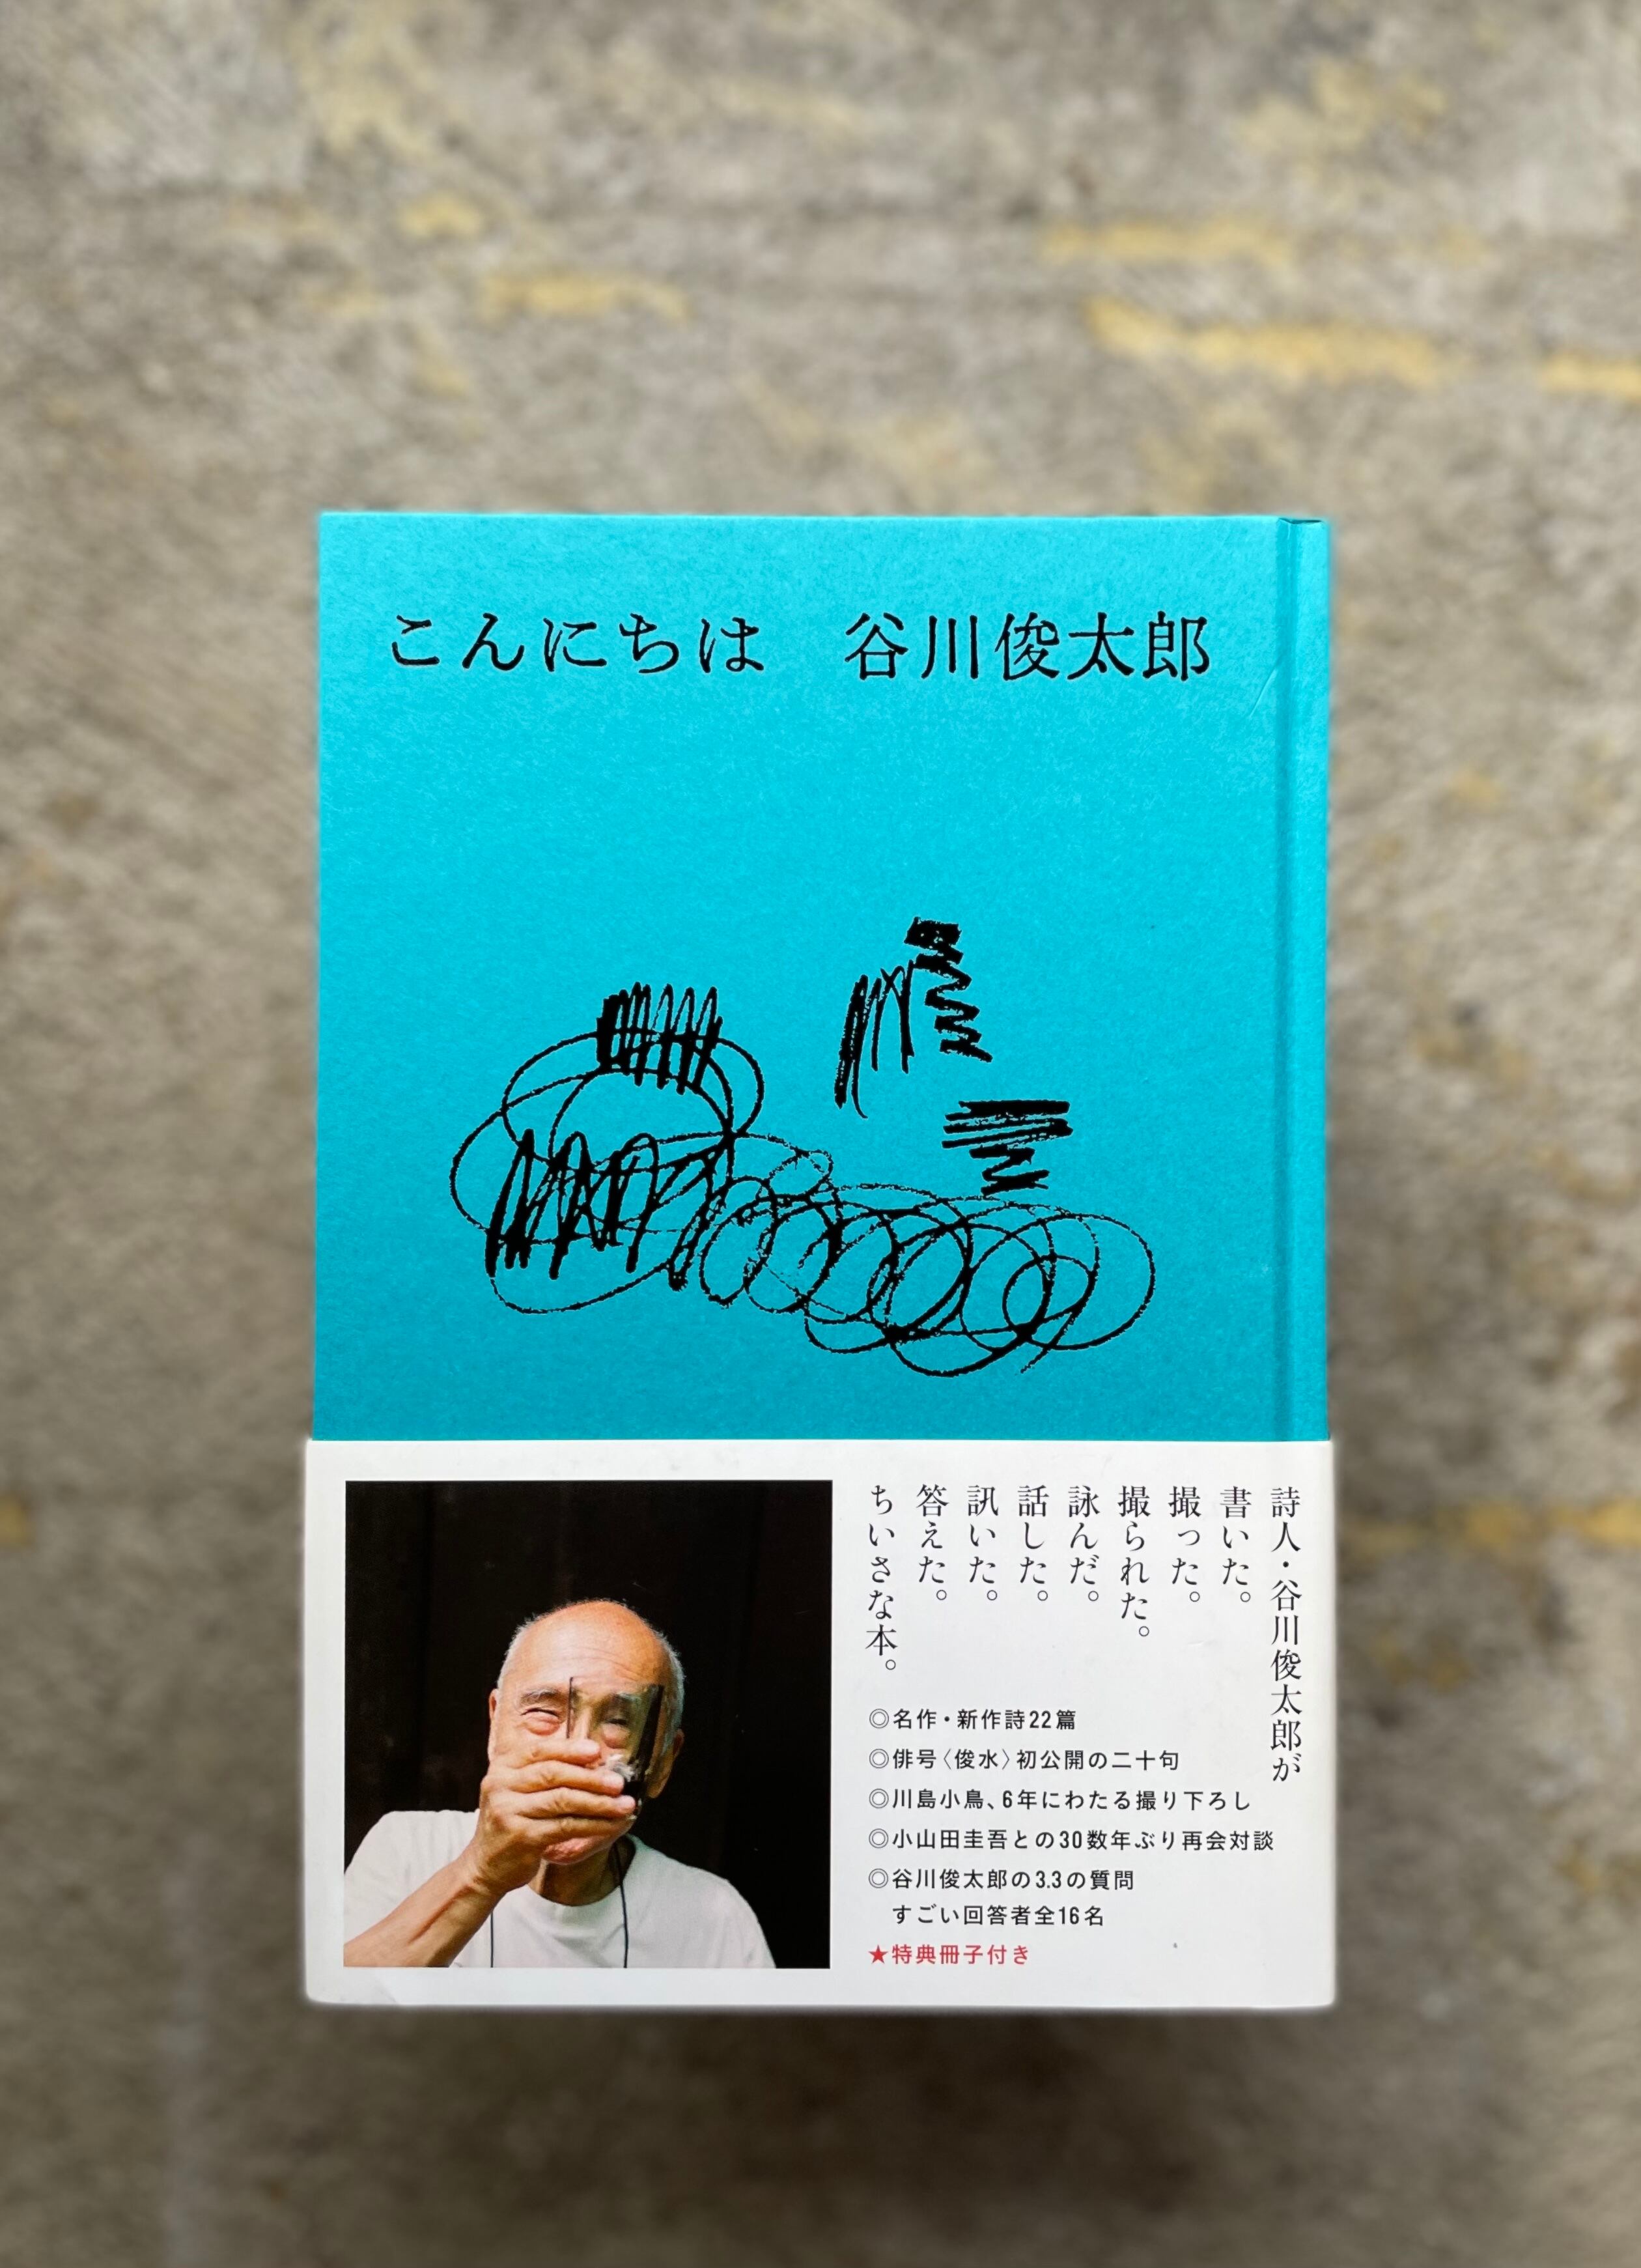 こんにちは　谷川俊太郎
詩人・谷川俊太郎が
書いた。
撮った。
撮られた。
詠んだ。
話した。
訊いた。
答えた。
ちいさな本。
◎名作・新作詩22篇
◎俳号〈俊水〉初公開の二十句
◎川島小鳥、6年にわたる撮り下ろし
◎小山田圭吾との30数年ぶり再会対談
◎谷川俊太郎の3.3の質問
すごい回答者全16名
★特典冊子付き